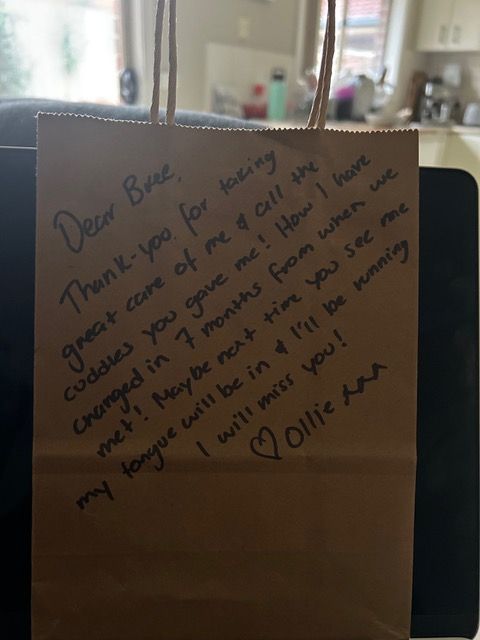 Dear Bree,
Thank-you for taking
great care of me & all the
cuddles you gave me! How I have
changed in 7 months from when we
met! Maybe next time you see me
my tongue will be in & I'll be running
I will miss you!
♡ Ollie xxx